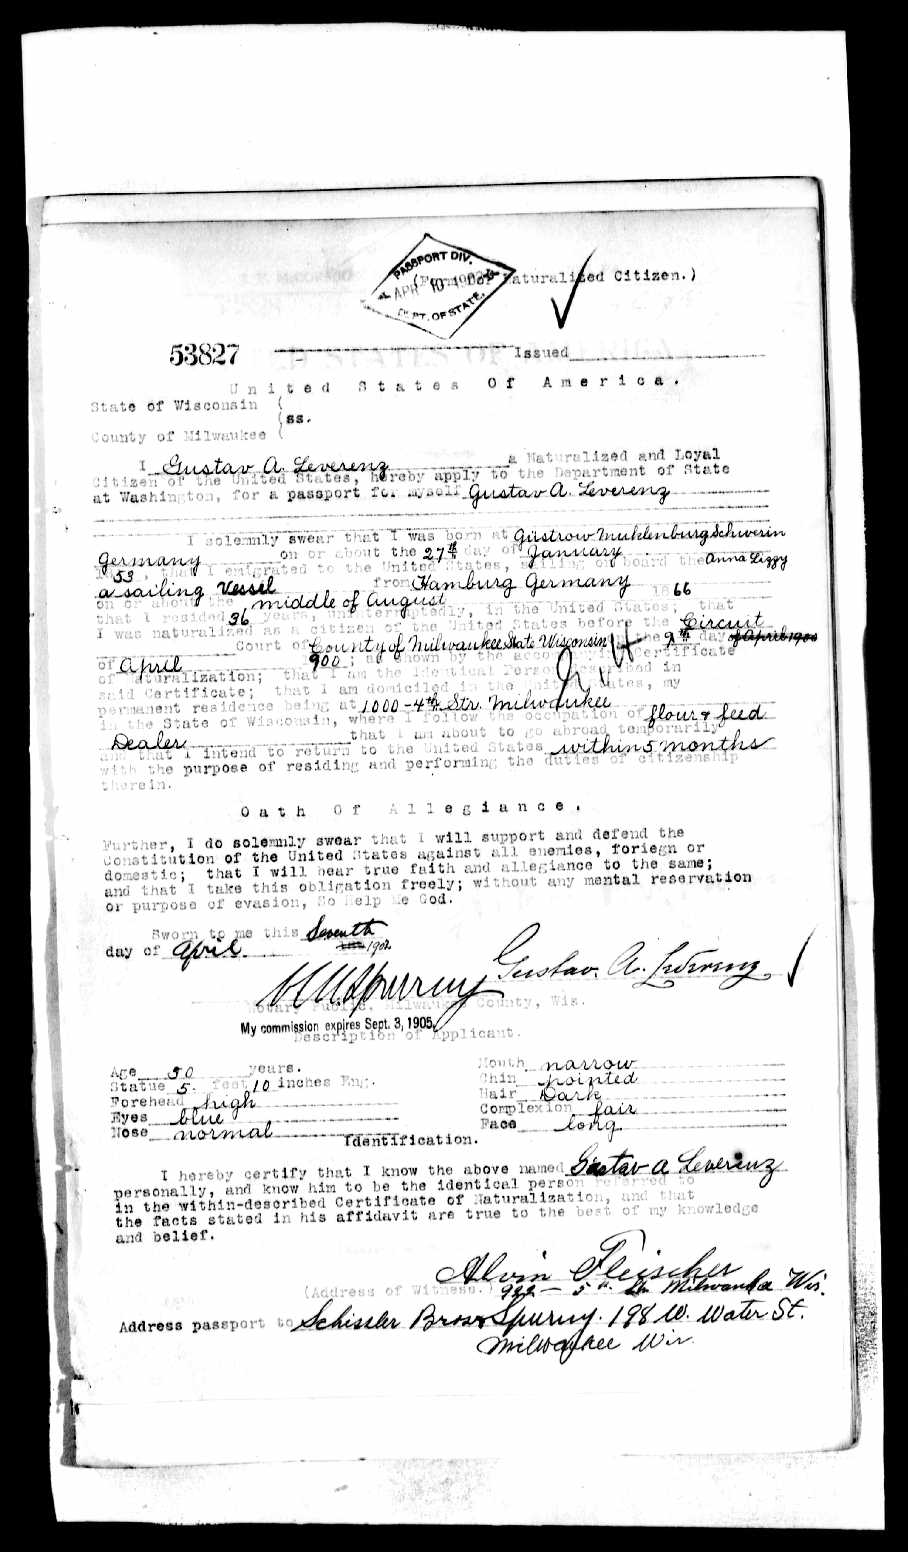 PASSPORT DIV.
APR 10 1902
DEPT. OF STATE.
(Form for Naturalized Citizen.)
53827 Issued
United States Of America.
State of Wisconsin (
(ss.
County of Milwaukee (
I Gustav A. Leverenz a Naturalized and Loyal
Citizen of the United States, hereby apply to the Department of State
at Washington, for a passport for myself Gustav A. Leverenz
I solemnly swear that I was born at Güstrow Muhlenburg Schwerin
Germany on or about the 27th day of January
53, that I emigrated to the United States, sailing on board the Anna Lizzy
a sailing Vessel from Hamburg Germany
on or about the middle of August 1866
that I resided 36 years, uninterruptedly, in the United States; that
I was naturalized as a citizen of the United States before the Circuit
Court of County of Milwaukee State Wisconsin the 9th day of April 1900
of April 1900; as shown by the accompanying Certificate
of Naturalization; that I am the identical person described in
said Certificate; that I am domiciled in the United States, my
permanent residence being at 1000-4th Str. Milwaukee
in the State of Wisconsin, where I follow the occupation of flour & feed
Dealer that I am about to go abroad temporarily
and that I intend to return to the United States within 5 months
with the purpose of residing and performing the duties of citizenship
therein.
Oath Of Allegiance.
Further, I do solemnly swear that I will support and defend the
Constitution of the United States against all enemies, foriegn or
domestic; that I will bear true faith and allegiance to the same;
and that I take this obligation freely; without any mental reservation
or purpose of evasion, So Help Me God.
Sworn to me this Seventh
day of April 1902
Gustav. A. Leverenz
Notary Public, Milwaukee County, Wis.
My commission expires Sept. 3, 1905.
Description of Applicant.
Age 50 years. Mouth narrow
Statue 5 feet 10 inches Eng. Chin pointed
Forehead high Hair Dark
Eyes blue Complexion fair
Nose normal Face long
Identification.
I hereby certify that I know the above named Gustav A Leverenz
personally, and know him to be the identical person referred to
in the within-described Certificate of Naturalization, and that
the facts stated in his affidavit are true to the best of my knowledge
and belief.
Alvin Fleischer
(Address of Witness.) 922 - 5th St. Milwaukee Wis.
Address passport to Schissler Bros & Spurny. 198 W. Water St.
Milwaukee Wis